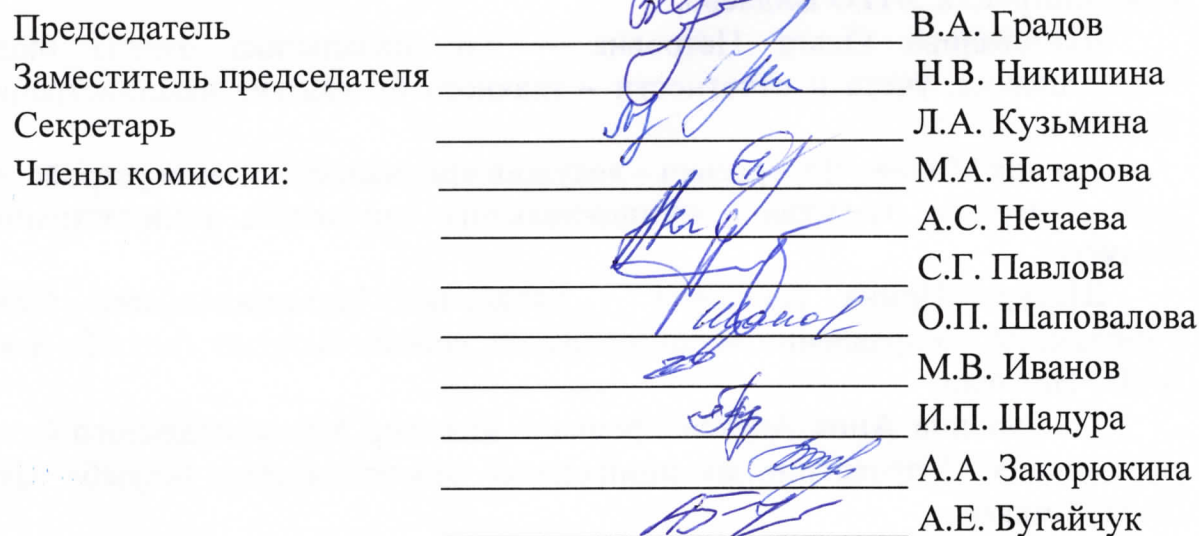 Председатель В.А. Градов
Заместитель председателя Н.В. Никишина
Секретарь Л.А. Кузьмина
Члены комиссии: М.А. Натарова
А.С. Нечаева
С.Г. Павлова
Иванов О.П. Шаповалова
М.В. Иванов
И.П. Шадура
А.А. Закорюкина
А.Е. Бугайчук